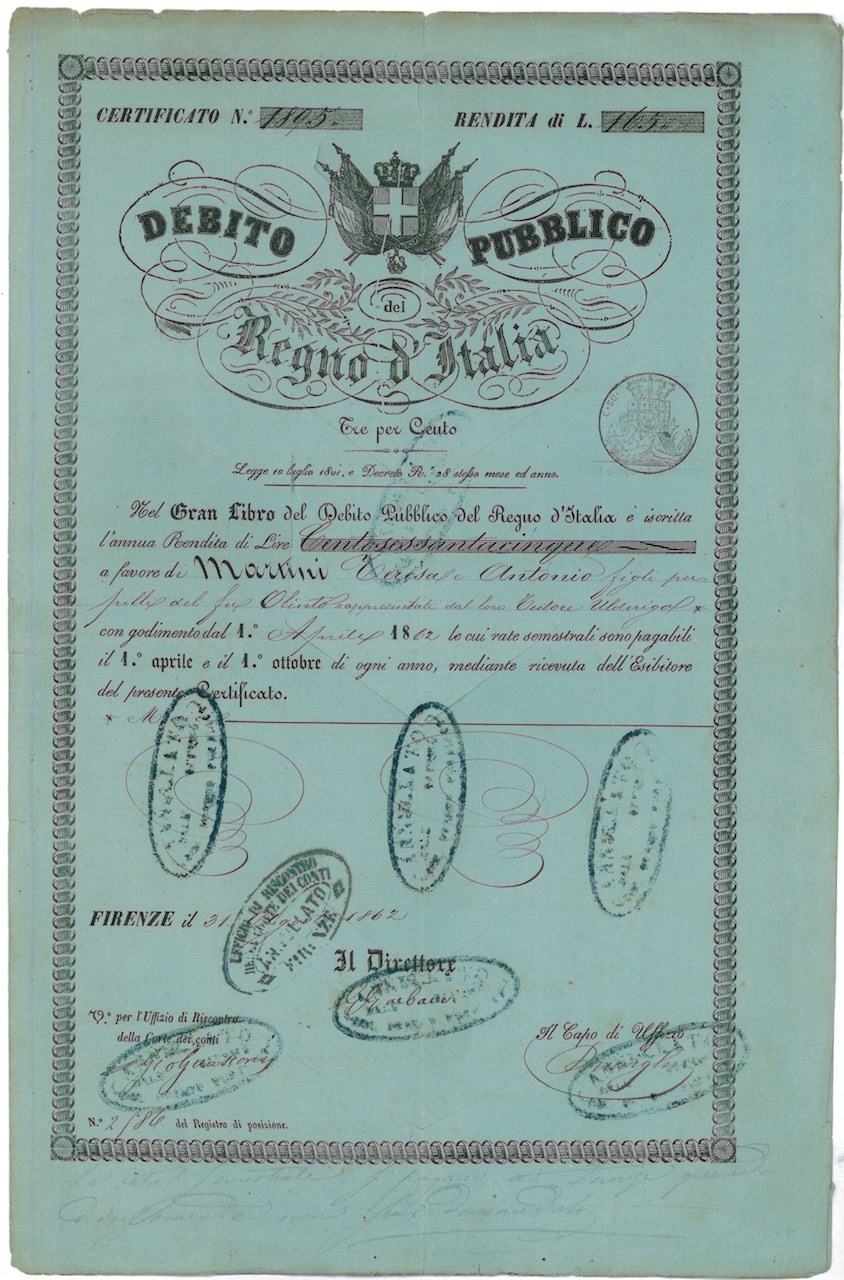 CERTIFICATO N.° 1895.
RENDITA di L. 165.
DEBITO PUBBLICO
del
Regno d'Italia
Tre per Cento
Legge 10 luglio 1861, e Decreto R.° 28 stesso mese ed anno.
Nel Gran Libro del Debito Pubblico del Regno d'Italia è iscritta
l'annua Rendita di Lire Centosessantacinque
a favore di Martini Taësa e Antonio figli pu-
pilli del fu Olinto rappresentati dal loro Tutore Ulderigo *
con godimento dal 1.° Aprile 1862 le cui rate semestrali sono pagabili
il 1.° aprile e il 1.° ottobre di ogni anno, mediante ricevuta dell'Esibitore
del presente Certificato.
* M
ANNULLATO
ANNULLATO
ANNULLATO
UFFICIO DI RISCONTRO
DELLA CORTE DEI CONTI
ANNULLATO
FIRENZE
FIRENZE il 31 1862
Il Direttore
V.° per l'Uffizio di Riscontro
della Corte dei conti
Il Capo di Uffizio
N.° 2186 del Registro di posizione.